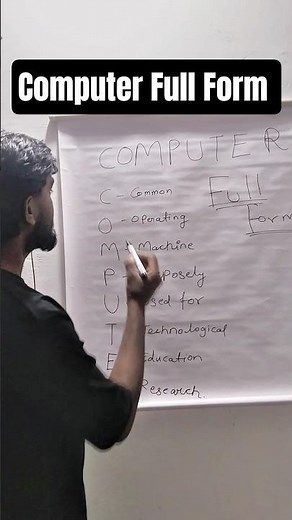 Computer Full Form
COMPUTER
Full
Form
C - Common
O - Operating
M - Machine
P -
U
T Technological
E Education
Research